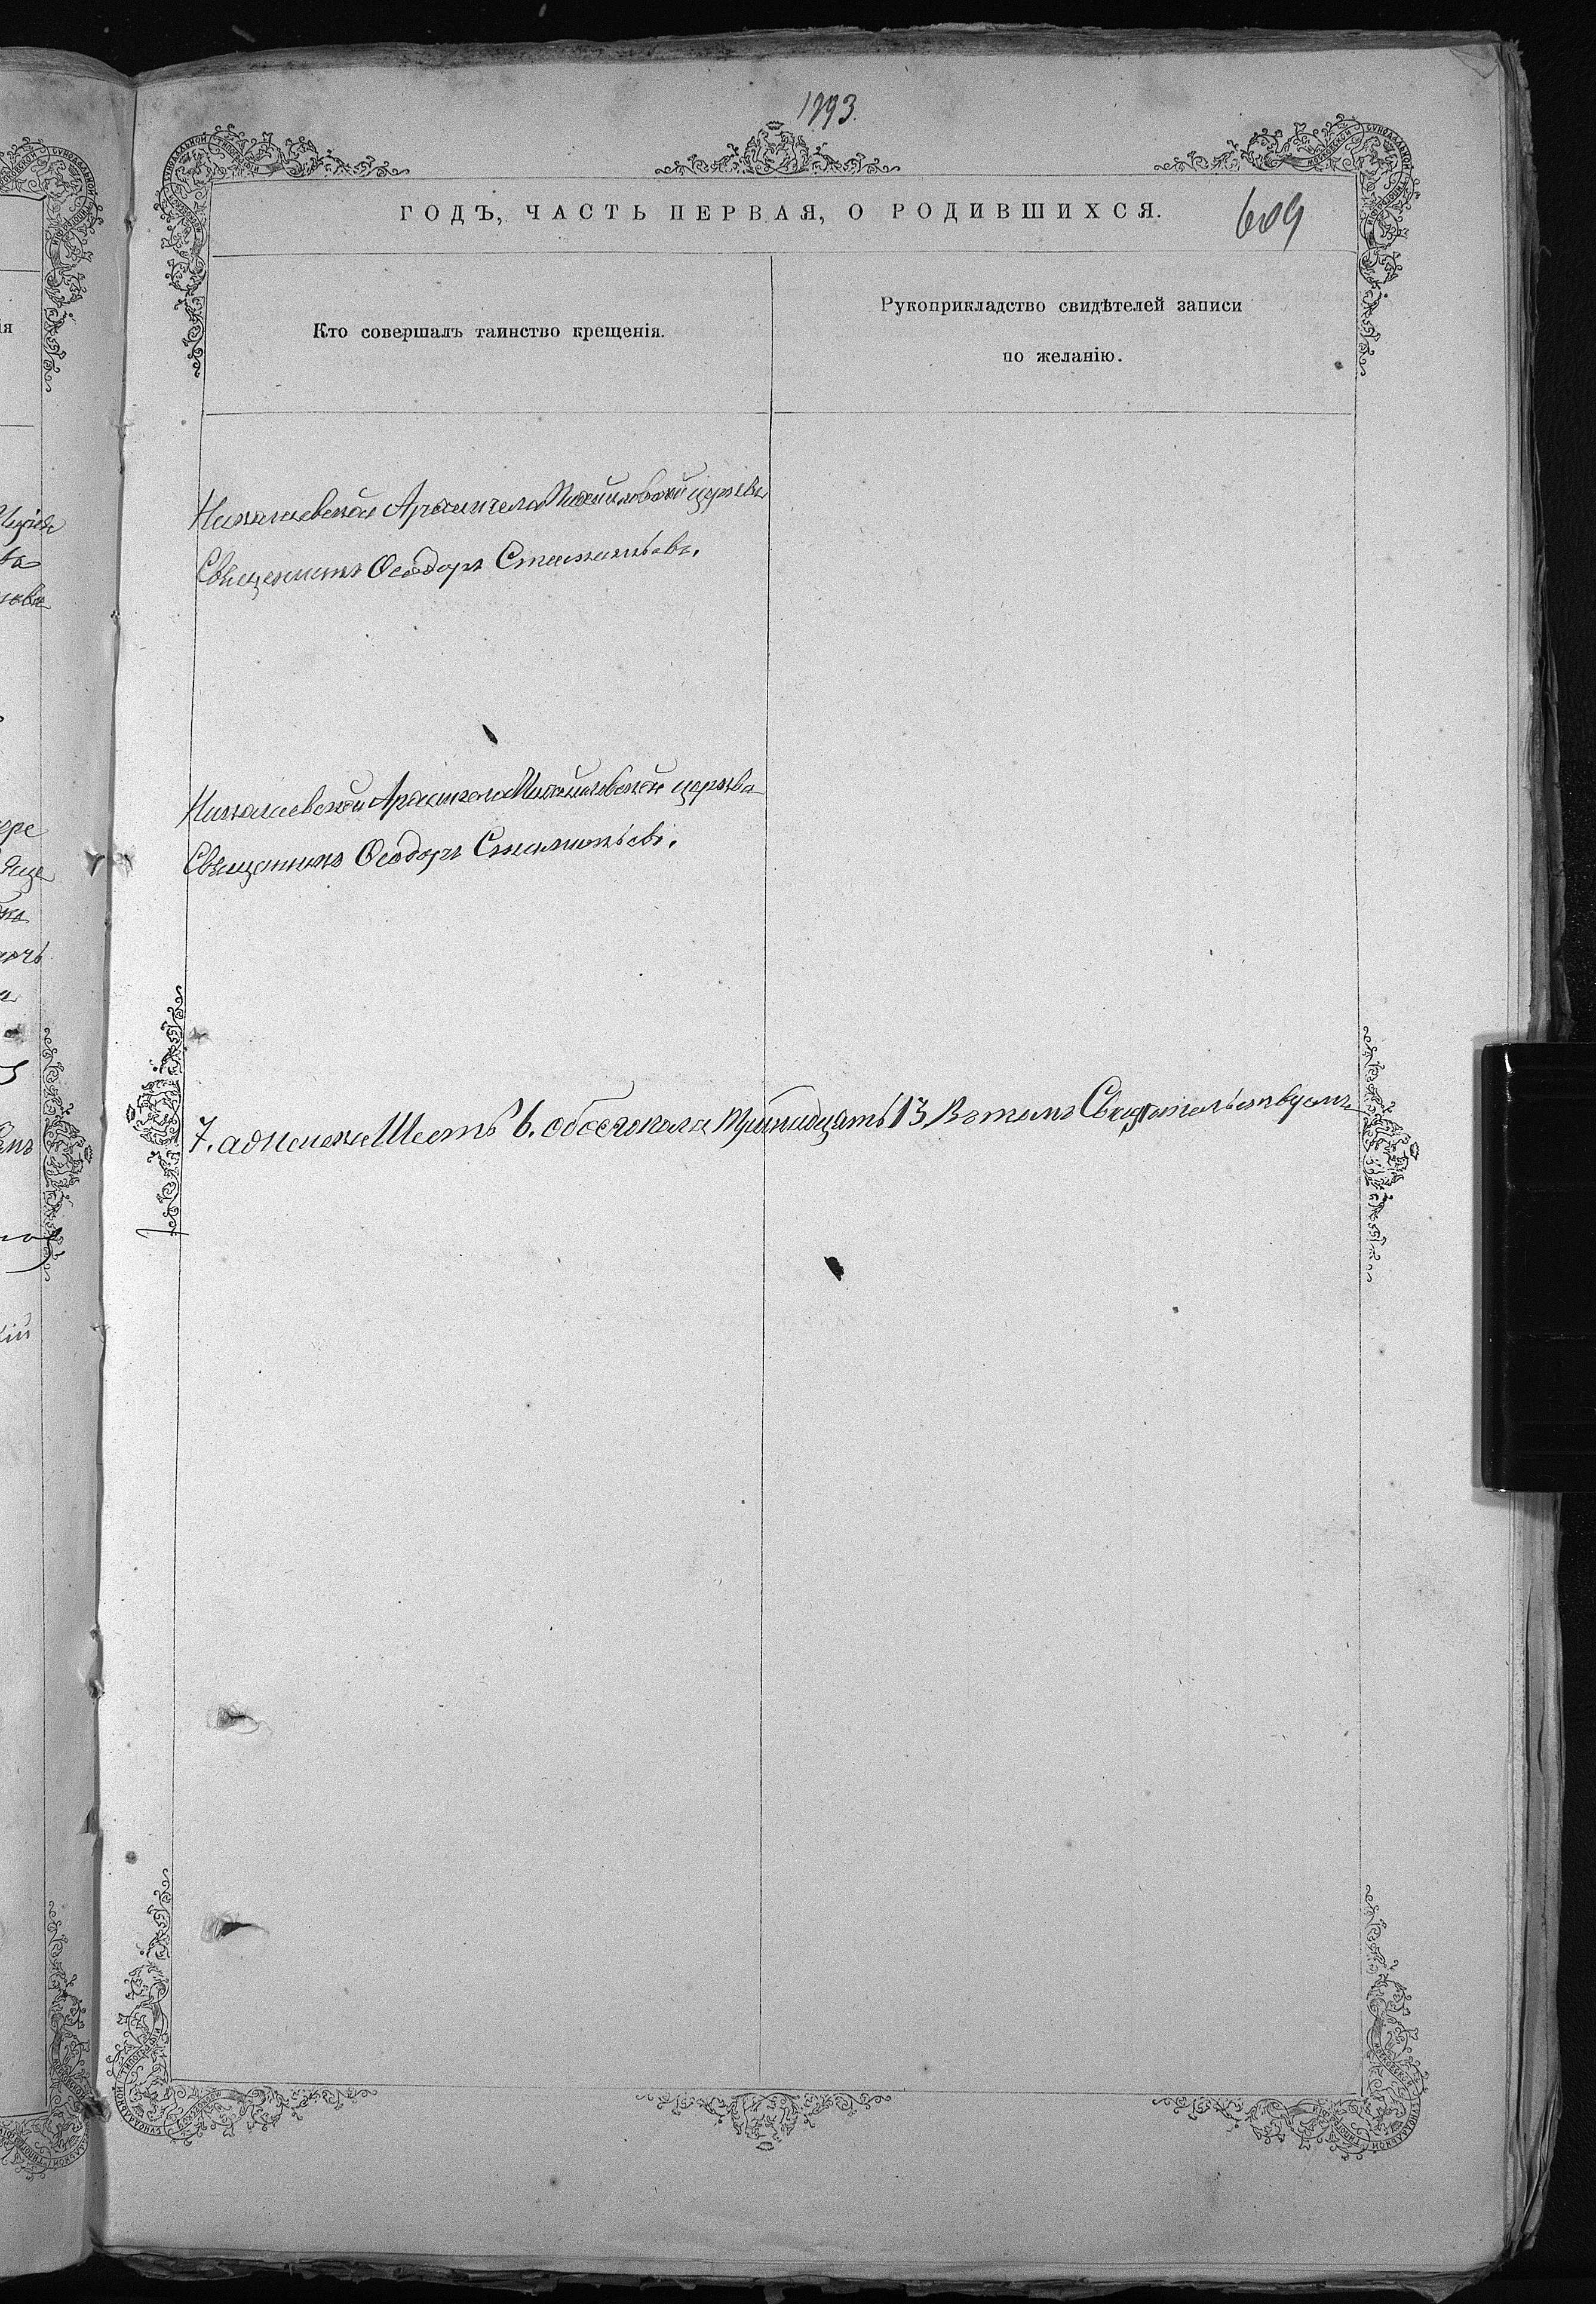 1793.
ГОДЪ, ЧАСТЬ ПЕРВАЯ, О РОДИВШИХСЯ.
609
Кто совершалъ таинство крещенія.
Рукоприкладство свидѣтелей записи
по желанію.
Николаевской Архангело Михайловской церкви
Священникъ Ѳеодоръ Стаматьевъ.
Николаевской Архангело Михайловской церкви
Священникъ Ѳеодоръ Стаматьевъ.
7. а женска Шесть 6. обоего пола тринадцать 13. В томъ Свидѣтельствуемъ